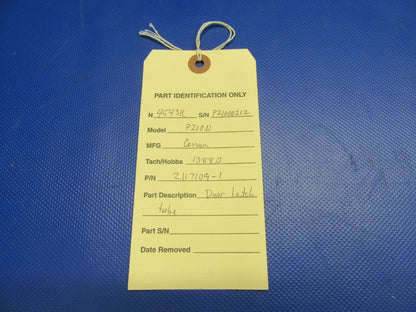 PART IDENTIFICATION ONLY
N 4543K S/N P21000212
Model P210N
MFG Cessna
Tach/Hobbs 1388.0
P/N 2117109-1
Part Description Door latch
tube
Part S/N
Date Removed